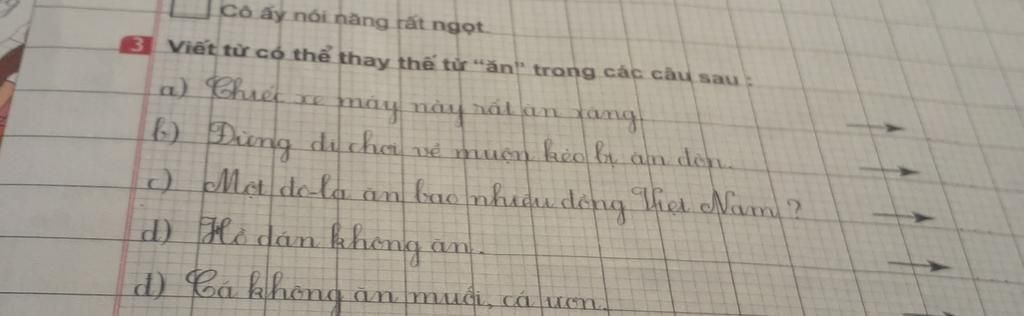 Cô ấy nói năng rất ngọt
3 Viết từ có thể thay thế từ "ăn" trong các câu sau:
a) Chiếc xe máy này rất ăn xăng
b) Đừng đi chơi về muộn kẻo bị ăn đòn.
c) Một đô-la ăn bao nhiêu đồng Việt Nam?
d) Hồ dán không ăn.
đ) Cá không ăn muối, cá ươn.